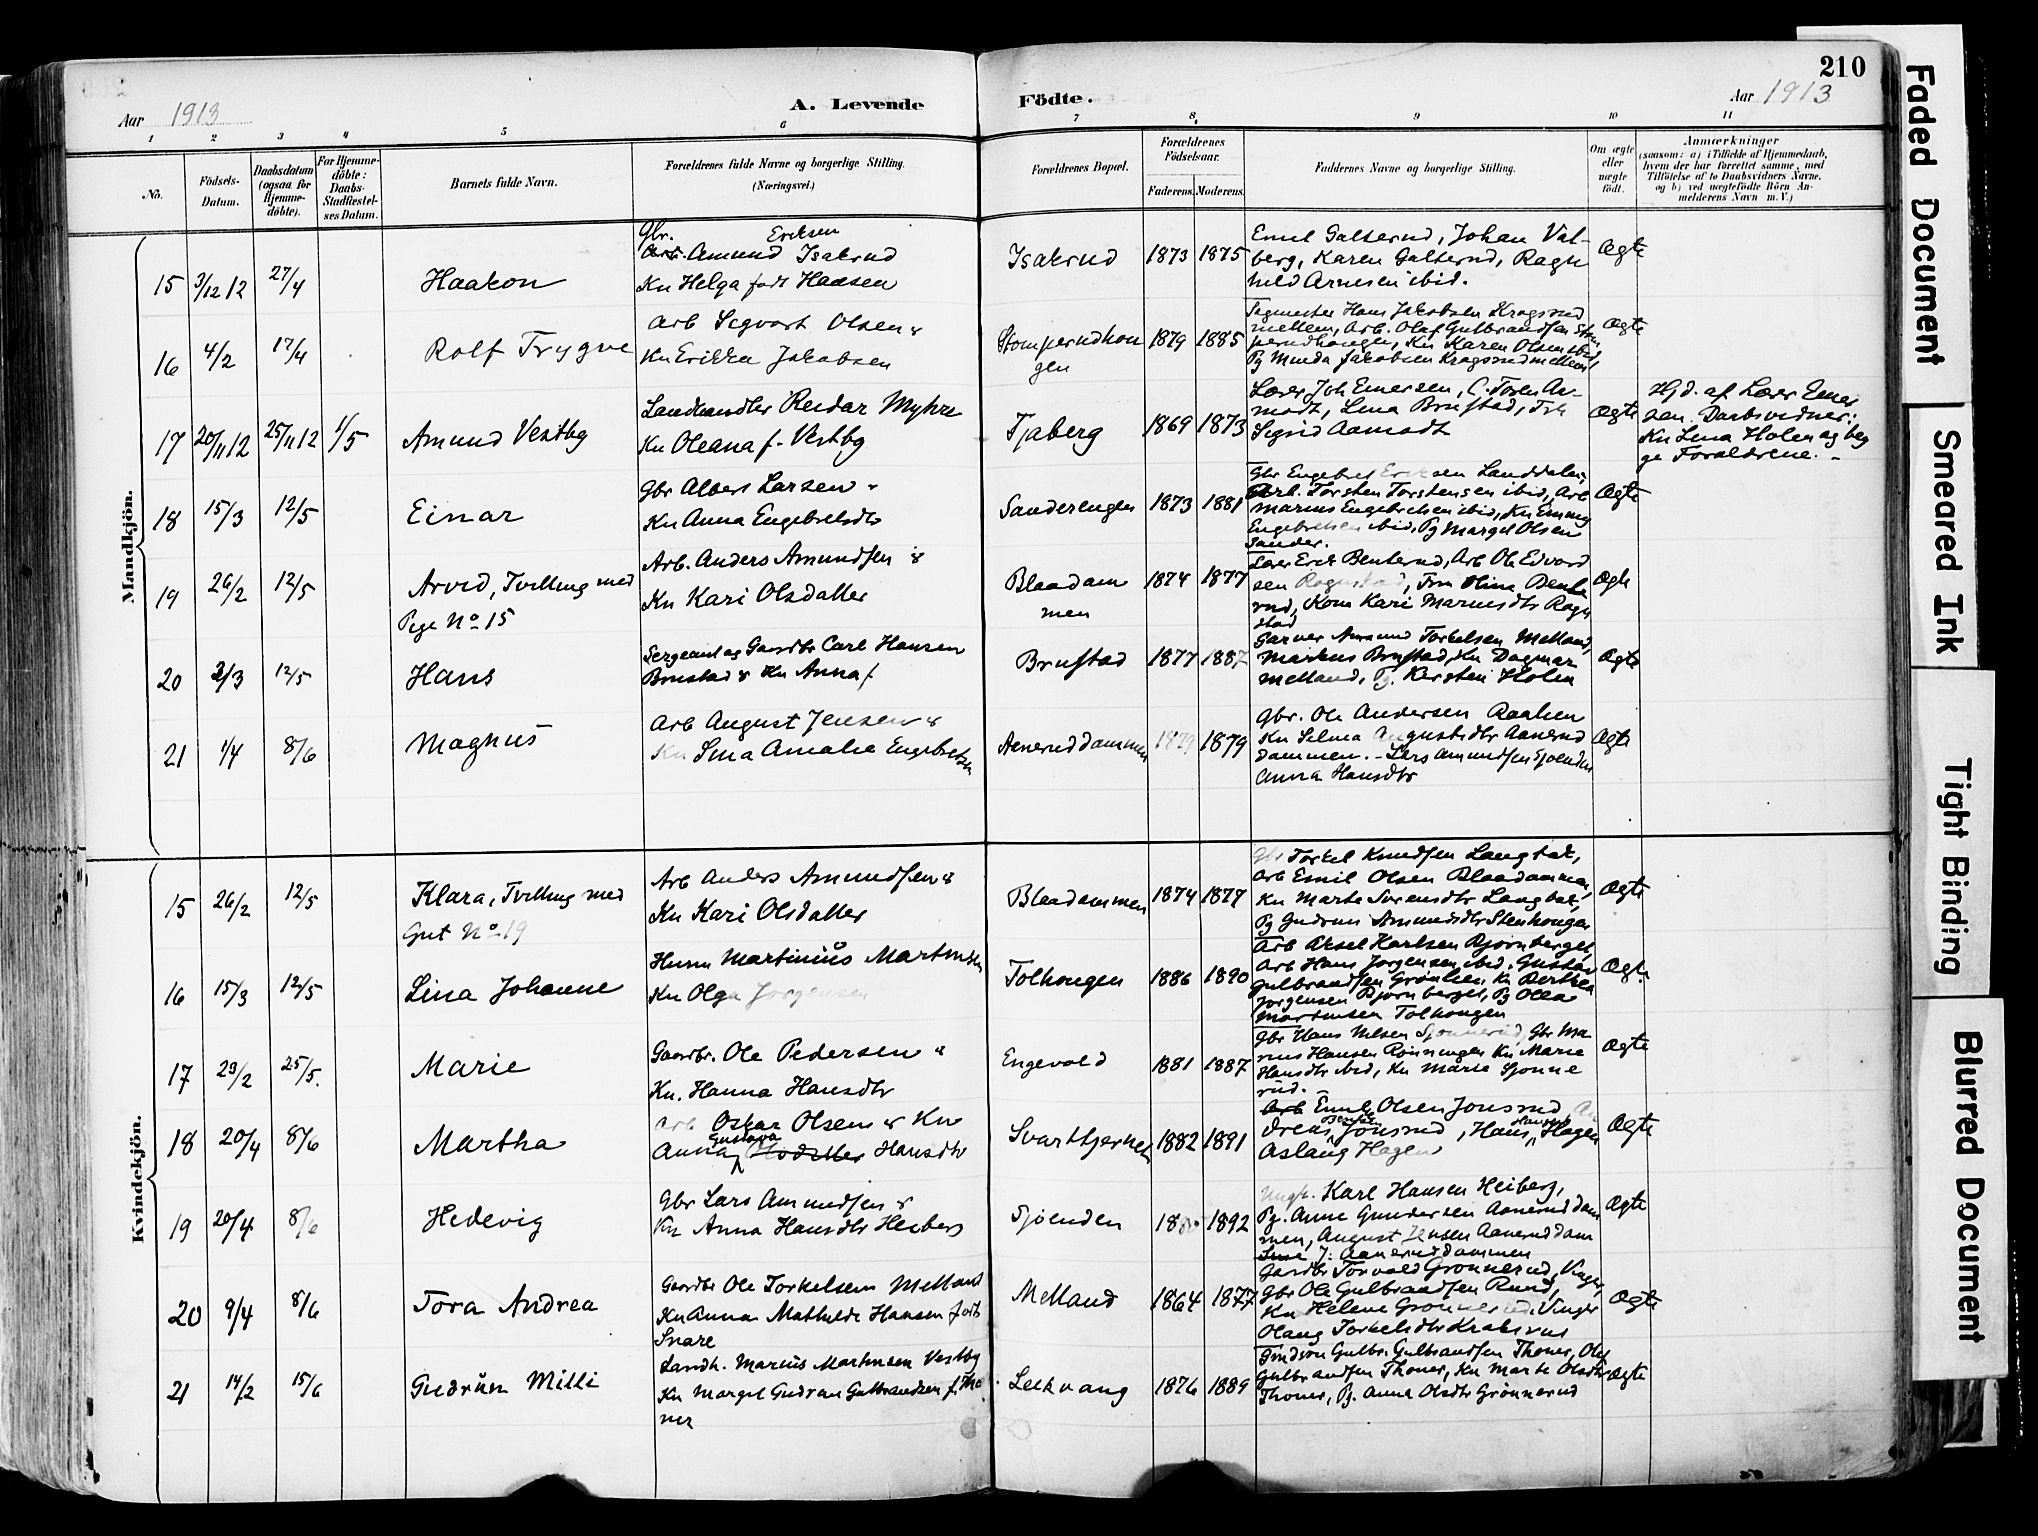 210
Aar 1913
A. Levende
Födte.
Aar 1913
1 2 3 4 5 6 7 8. 9 10 11
No.
Födsels-Datum.
Daabsdatum (ogsaa for Hjemme-döbte).
For Hjemme-döbte: Daabs-Stadfæstel-ses Datum.
Barnets fulde Navn.
Forældrenes fulde Navne og borgerlige Stilling.
(Næringsvei.)
Forældrenes Bopæl.
Forældrenes Födselsaar.
Faderens. Moderens.
Faddernes Navne og borgerlige Stilling.
Om ægte eller uægte födt.
Anmærkninger
(saasom: a) i Tilfælde af Hjemmedaab,
hvem der har forrettet samme, med
Tilföielse af to Daabsvidners Navne.
og b) ved uægtefödte Börn An-
melderens Navn m. V.)
Mandkjön.
15 3/12 12 27/4 Haakon
Gbr. Eriksen
Arb. Amund Isakrud
Kn Helga født Hansen
Isakrud 1873 1875
Emil Galterud, Johan Val-
berg, Karen Galterud, Ragn
hild Arnesen ibid.
Ægte
16 4/2 17/4 Rolf Trygve
Arb Sigvart Olsen &
Kn Erikka Jakobsen
Stomperudhou
gen
1879 1885
Hans Jakobsen Kragsrud
mellem, Arb. Olaf Gulbrandsen Stom
perudhougen, Kn Karen Olsen ibid,
Pg Minda Jakobsen Kragsrudmellem
Ægte
17 20/11 12 25/11 12 1/5 Amund Vestby
Landhandler Reidar Myhre
Kn Oleana f. Vestby
Tjaberg 1869 1873
Lærer Joh Emersen,
Lina Brustad, Frk
Sigrid Aamodt
Ægte
Hjd. af Lærer Emer
sen. Daabsvidner:
Kn Lina Holen og beg
ge Forældrene. -
18 15/3 12/5 Einar
Gbr Albert Larsen -
Kn Anna Engebretsdtr
Sanderengen 1873 1881
Gbr Engebret Eriksen
Arb. Torsten Torstensen ibid, Arb
Marius Engebretsen ibid, Kn Emmy
Engebretsen ibid, Pg Margit Olsen
Sander.
Ægte
19 26/2 12/5 Arvid, Tvilling med
Pige No 15
Arb. Anders Amundsen &
Kn Kari Olsdatter
Blaadam
men
1874 1877
Lærer Erik Benterud, Arb Ole Edvard
sen Ragnstad, Fru Olina Bente
rud, Kone Kari Mariusdtr Ragn
stad
Ægte
20 2/3 12/5 Hans
Sergeant og Gaardbr Carl Hansen
Brustad & Kn Anna f
Brustad 1877 1887
Garver Amund Torkelsen Melland,
Markus Brustad, Kn Dagmar
Melland, Pg. Kirsten Holen
Ægte
21 1/4 8/6 Magnus
Arb August Jensen &
Kn Lina Amalia Engebretsen
Aaneruddammen 1879 1879
Gbr. Ole Andersen Raaken
Kn Selma Augustsdtr Aanerud
dammen. - Lars Amundsen Sjøenden
Anna Hansdtr
Ægte
Kvindekjön.
15 26/2 12/5 Klara, Tvilling med
Gut No 19
Arb Anders Amundsen &
Kn Kari Olsdatter
Blaadammen 1874 1877
Gbr Torkel Knudsen Langbak,
Arb Emil Olsen Blaadammen,
Kn Marte Svensdtr Langbak,
Pg Gudrun Amundsdtr Stenhougen
Ægte
16 15/3 12/5 Lina Johanne
Husm Martinius Martinsen
Kn Olga Jorgensen
Tolhougen 1886 1890
Arb Aksel Karlsen Bjørnberget,
Arb Hans Jorgensen ibid, Gustav
Gulbrandsen Grønlien, Kn Berthea
Jorgensen Bjørnberget, Pg Olea
Martinsen Tolhougen
Ægte
17 23/2 25/5. Marie
Gaardbr. Ole Pedersen &
Kn. Hanna Hansdtr
Engevold 1881 1887
Gbr Hans Nilsen Sjønnerud, Gbr Ma
rius Hansen Rønningen Kn Marie
Hansdtr ibid, Kn Marie Sjønne
rud.
Ægte
18 20/4 8/6 Martha
Arb Oskar Olsen & Kn
Gustava
Anna Hansdtr
Svarttjernet 1882 1891
Arb Emil Olsen Jonsrud An
dreas Jonsrud, Hans Hansen Hagen
Aslaug Hagen
Ægte
19 20/4 8/6 Hedevig
Gbr Lars Amundsen &
Kn Anna Hansdtr Heiberg
Sjøenden 1892
Ungk. Karl Hansen Heiberg,
Pg. Anne Gundersen Aaneruddam
men, August Jensen Aaneruddam
Lina J. Aaneruddammen
Ægte
20 9/4 8/6 Tora Andrea
Gaardbr Ole Torkelsen Melland
Kn Anna Mathilde Hansen født
Snare
Melland 1864 1877
Gaardbr Torvald Grønnerud, Vinger,
Gbr Ole Gulbrandsen Rund,
Kn Helene Grønnerud, Vinger
Olaug Torkelsdtr Krabsrud
Ægte
21 14/2 15/6 Gudrun Milli
Landh. Marius Martinsen Vestby
Kn Margit Gudrun Gulbrandsen f. Tho
ner
Leikvang 1876 1889
Gulbr. Gulbrandsen Thoner, Olaf
Gulbrandsen Thoner, Kn Marte Olsdtr
Thoner, Pg. Anna Olsdtr Grønnerud
Ægte
Faded Document
Smeared Ink
Tight Binding
Blurred Document